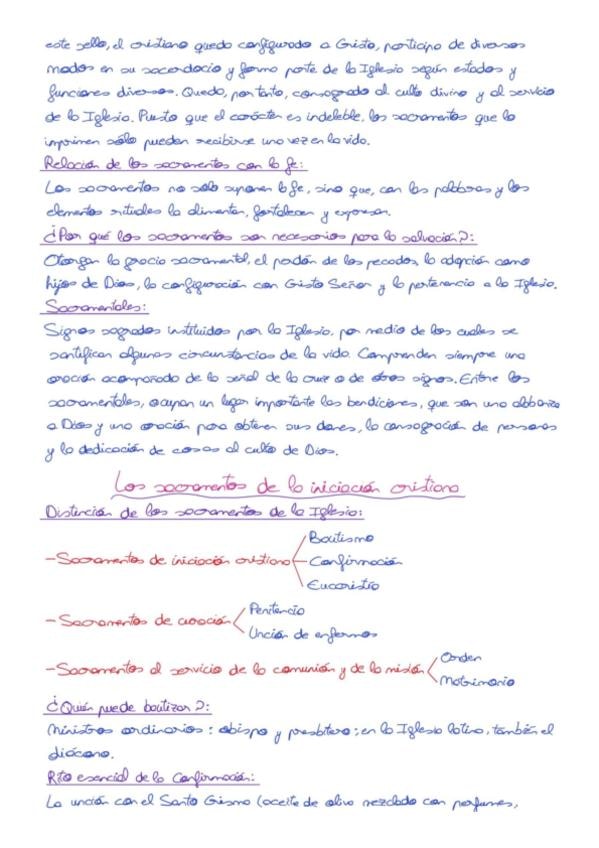 este sello, el cristiano queda configurado a Cristo, participa de diversos
modos en su sacerdocio y forma parte de la Iglesia según estados y
funciones diversos. Queda, por tanto, consagrado al culto divino y al servicio
de la Iglesia. Puesto que el carácter es indeleble, los sacramentos que lo
imprimen sólo pueden recibirse una vez en la vida.
Relación de los sacramentos con la fe:
Los sacramentos no sólo suponen la fe, sino que, con las palabras y los
elementos rituales la alimentan, fortalecen y expresan.
¿Por qué los sacramentos son necesarios para la salvación?:
Otorgan la gracia sacramental, el perdón de los pecados, la adopción como
hijos de Dios, la configuración con Cristo Señor y la pertenencia a la Iglesia.
Sacramentales:
Signos sagrados instituidos por la Iglesia, por medio de los cuales se
santifican algunas circunstancias de la vida. Comprenden siempre una
oración acompañada de la señal de la cruz o de otros signos. Entre los
sacramentales, ocupan un lugar importante las bendiciones, que son una alabanza
a Dios y una oración para obtener sus dones, la consagración de personas
y la dedicación de cosas al culto de Dios.
Los sacramentos de la iniciación cristiana
Distinción de los sacramentos de la Iglesia:
Bautismo
-Sacramentos de iniciación cristiana Confirmación
Eucaristía
Penitencia
-Sacramentos de curación
Unción de enfermos
Orden
-Sacramentos al servicio de la comunión y de la misión
Matrimonio
¿Quién puede bautizar?:
Ministros ordinarios: obispo y presbítero; en la Iglesia latina, también el
diácono.
Rito esencial de la Confirmación:
La unción con el Santo Crisma (aceite de oliva mezclado con perfumes,